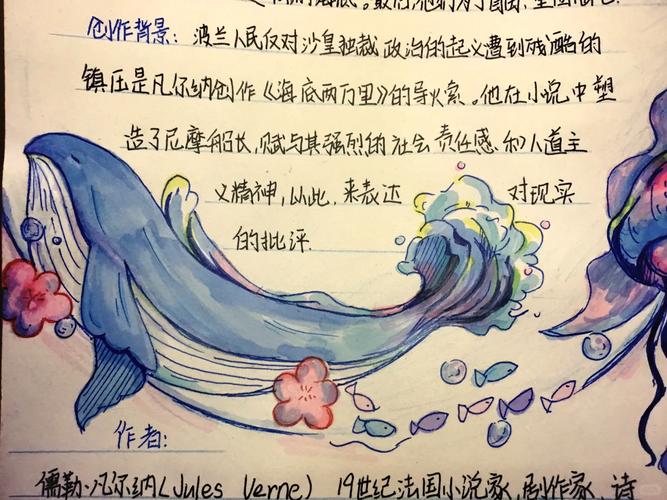 创作背景：波兰人民反对沙皇独裁政治的起义遭到残酷的
镇压是凡尔纳创作《海底两万里》的导火索。他在小说中塑
造了尼摩船长，赋与其强烈的社会责任感和人道主
义精神，从此，来表达对现实
的批评.
作者：
儒勒·凡尔纳(Jules Verne) 19世纪法国小说家，剧作家 诗